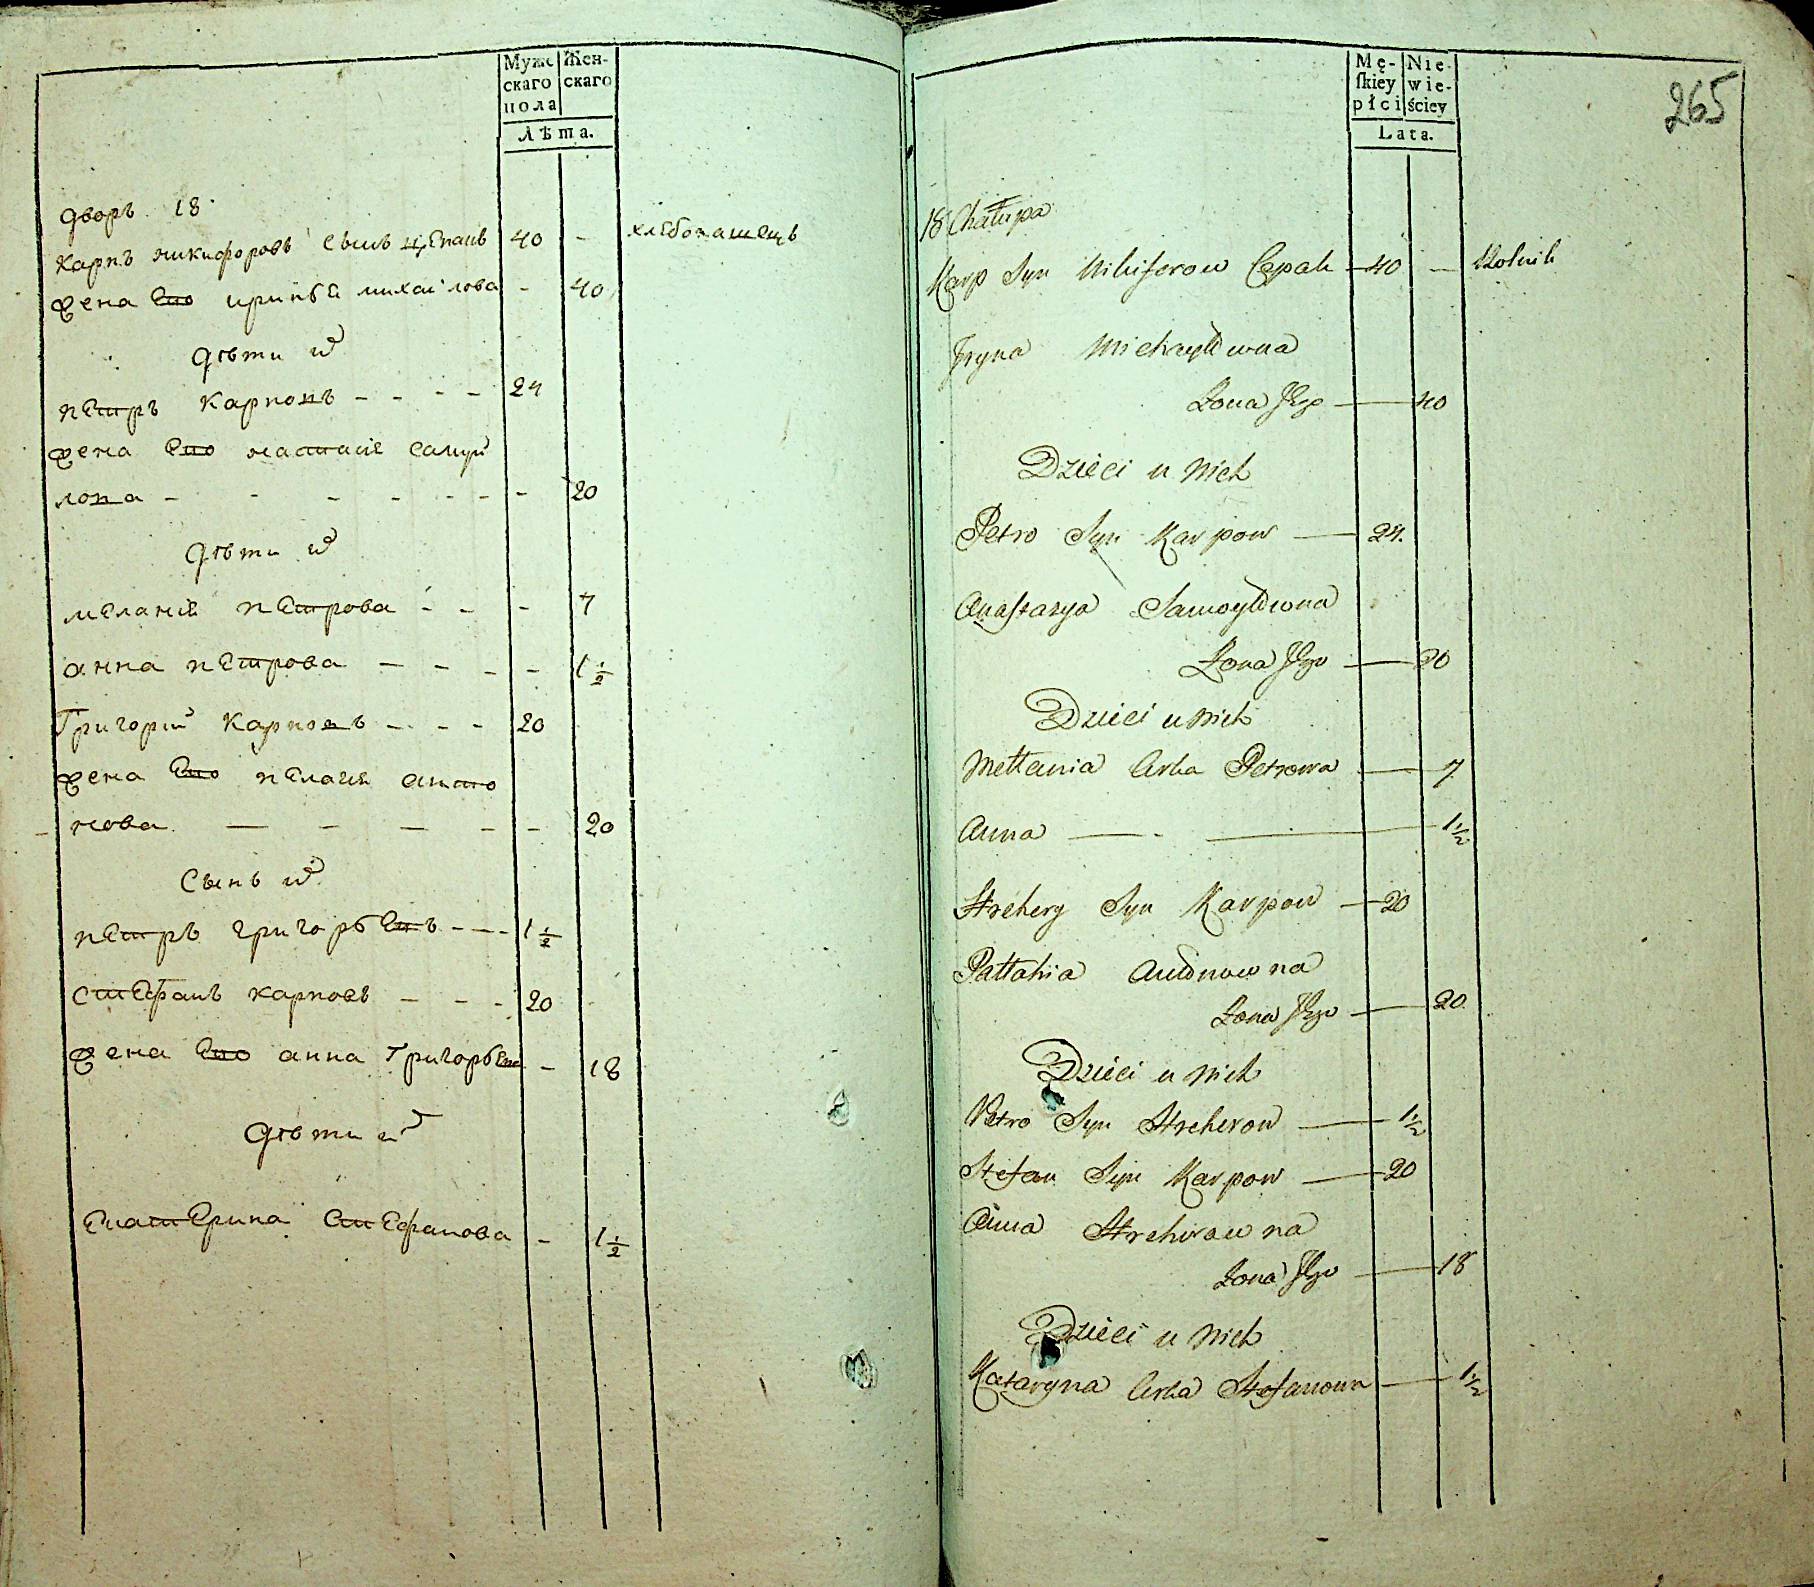 Муже Жен-
скаго скаго
пола
Лѣта.
дворъ 18
карпъ никифоровъ сынъ цепанъ 40 -
жена его ирина михайлова - 40
дѣти их
петръ карповъ - - - - 24
жена его настасіе самуй
лова - - - - - - - 20
дѣти их
меланіе петрова - - - 7
анна петрова - - - - 1 1/2
Григорій карповъ - - - 20
жена его пелагие анто
нова - - - - - 20
сынъ их
петръ григорьевъ - - - 1 1/2
стефанъ карповъ - - - 20
жена его анна григорьева - 18
дѣти их
екатерина стефанова - 1 1/2
хлебопашецъ
Mę- Nie-
skiey wie-
płci ściey
Lata.
265
18 Chałupa
Karp Syn Nikiforow Cepak 40 - Rolnik
Iryna Michayłowna
Żona Jego 40
Dzieci u Nich
Petro Syn Karpow 24.
Anastazya Samoyłowna
Żona Jego 20
Dzieci u Nich
Mełania Corka Petrowa 7
Anna 1 1/2
Hrehory Syn Karpow 20
Pałahia Antonowna
Żona Jego 20
Dzieci u Nich
Petro Syn Hrehorow 1 1/2
Stefan Syn Karpow 20
Anna Hrehorowna
Żona Jego 18
Dzieci u Nich
Kataryna Corka Stefanowa 1 1/2